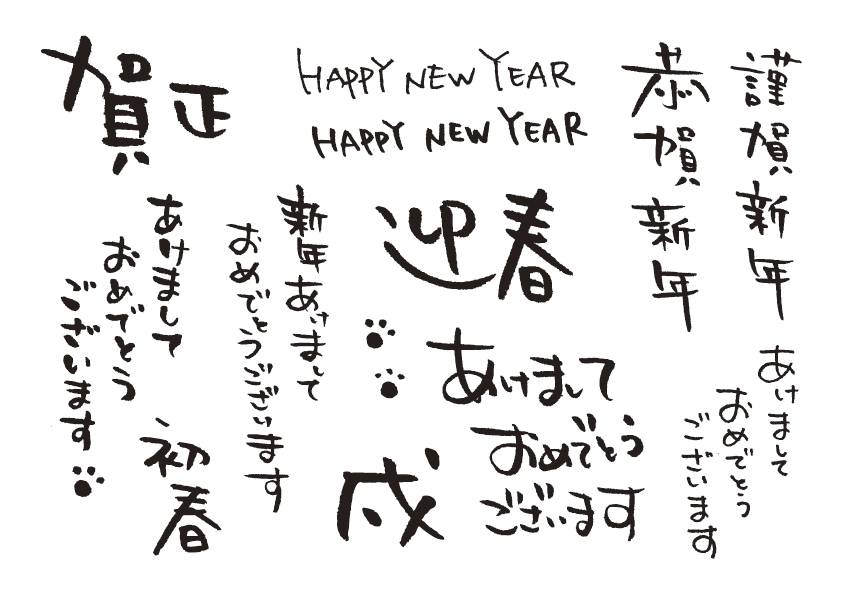 賀正
HAPPY NEW YEAR
HAPPY NEW YEAR
恭賀新年
謹賀新年
あけまして
おめでとう
ございます
新年あけまして
おめでとうございます
迎春
あけまして
おめでとう
ございます
あけまして
おめでとう
ございます
初春
戌